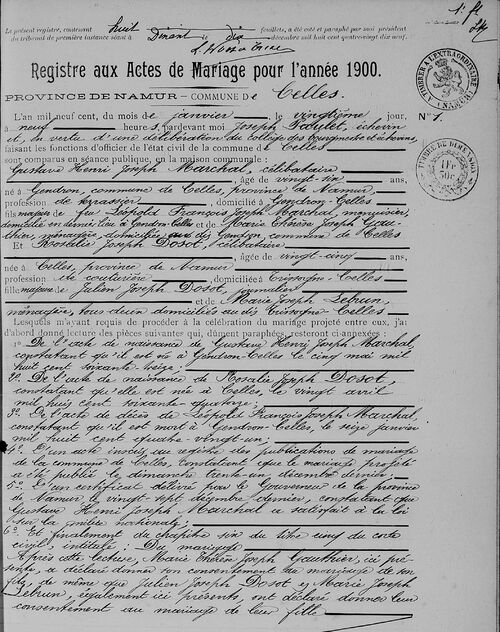 1. ft
Le présent registre, contenant huit feuillets, a été coté et paraphé par moi président
du tribunal de première instance séant à Dinant le dix décembre mil huit cent quatre-vingt dix neuf.
Registre aux Actes de Mariage pour l'année 1900.
PROVINCE DE NAMUR — COMMUNE De Celles.
A TIMBRER A L'EXTRAORDINAIRE (NAMUR)
N° 1.
L'an mil neuf cent, du mois de janvier, le vingtième jour,
à neuf heures, pardevant moi Joseph échevin
et, en vertu d'une délibération du collège des bourgmestre et échevins,
faisant les fonctions d'officier de l'état civil de la commune de Celles
sont comparus en séance public, en la maison commune :
Gustave Henri Joseph Marchal, célibataire
, âgé de vingt six ans,
né à Gendron, commune de Celles, province de Namur
profession de terrassier, domicilié à Gendron-Celles
fils majeur de feu Léopold François Joseph Marchal, menuisier,
domicilié en dernier lieu à Gendron-Celles et de Marie Thérèse Joseph Gau-
thier, ménagère, domiciliée au dit Gendron, commune de Celles
Et Rosalie Joseph Dosot, célibataire
, âgée de vingt cinq ans,
née à Celles, province de Namur
profession de couturière, domiciliée à -Celles
fille majeure de Julien Joseph Dosot, journalier
et de Marie Joseph Lebrun,
ménagère, tous deux domiciliés au dit -Celles
Lesquels m'ayant requis de procéder à la célébration du mariage projeté entre eux, j'ai
d'abord donné lecture des pièces suivantes qui, dûment paraphées, resteront ci-annexées :
1° De l'acte de naissance de Gustave Henri Joseph Marchal,
constatant qu'il est né à Gendron-Celles le cinq mai mil
huit cent soixante treize ;
2° De l'acte de naissance de Rosalie Joseph Dosot,
constatant qu'elle est née à Celles, le vingt avril
mil huit cent soixante quatorze ;
3° De l'acte de décès de Léopold François Joseph Marchal,
constatant qu'il est mort à Gendron-Celles, le seize janvier
mil huit cent quatre-vingt-un ;
4° D'un acte inscrit au registre des publications de mariage
de la commune de Celles, constatant que le mariage projeté
a été publié le dimanche trente-un décembre dernier ;
5° D'un certificat délivré par le Gouverneur de la province
de Namur le vingt-sept décembre dernier, constatant que
Gustave Henri Joseph Marchal a satisfait à la loi
sur la milice nationale ;
6° Et finalement du chapitre six du titre cinq du code
civil, intitulé : Du mariage
Après cette lecture, Marie Thérèse Joseph Gauthier, ici pré-
sente, a déclaré donner son consentement au mariage de son
fils, de même que Julien Joseph Dosot et Marie Joseph
Lebrun, également ici présents, ont déclaré donner leur
consentement au mariage de leur fille